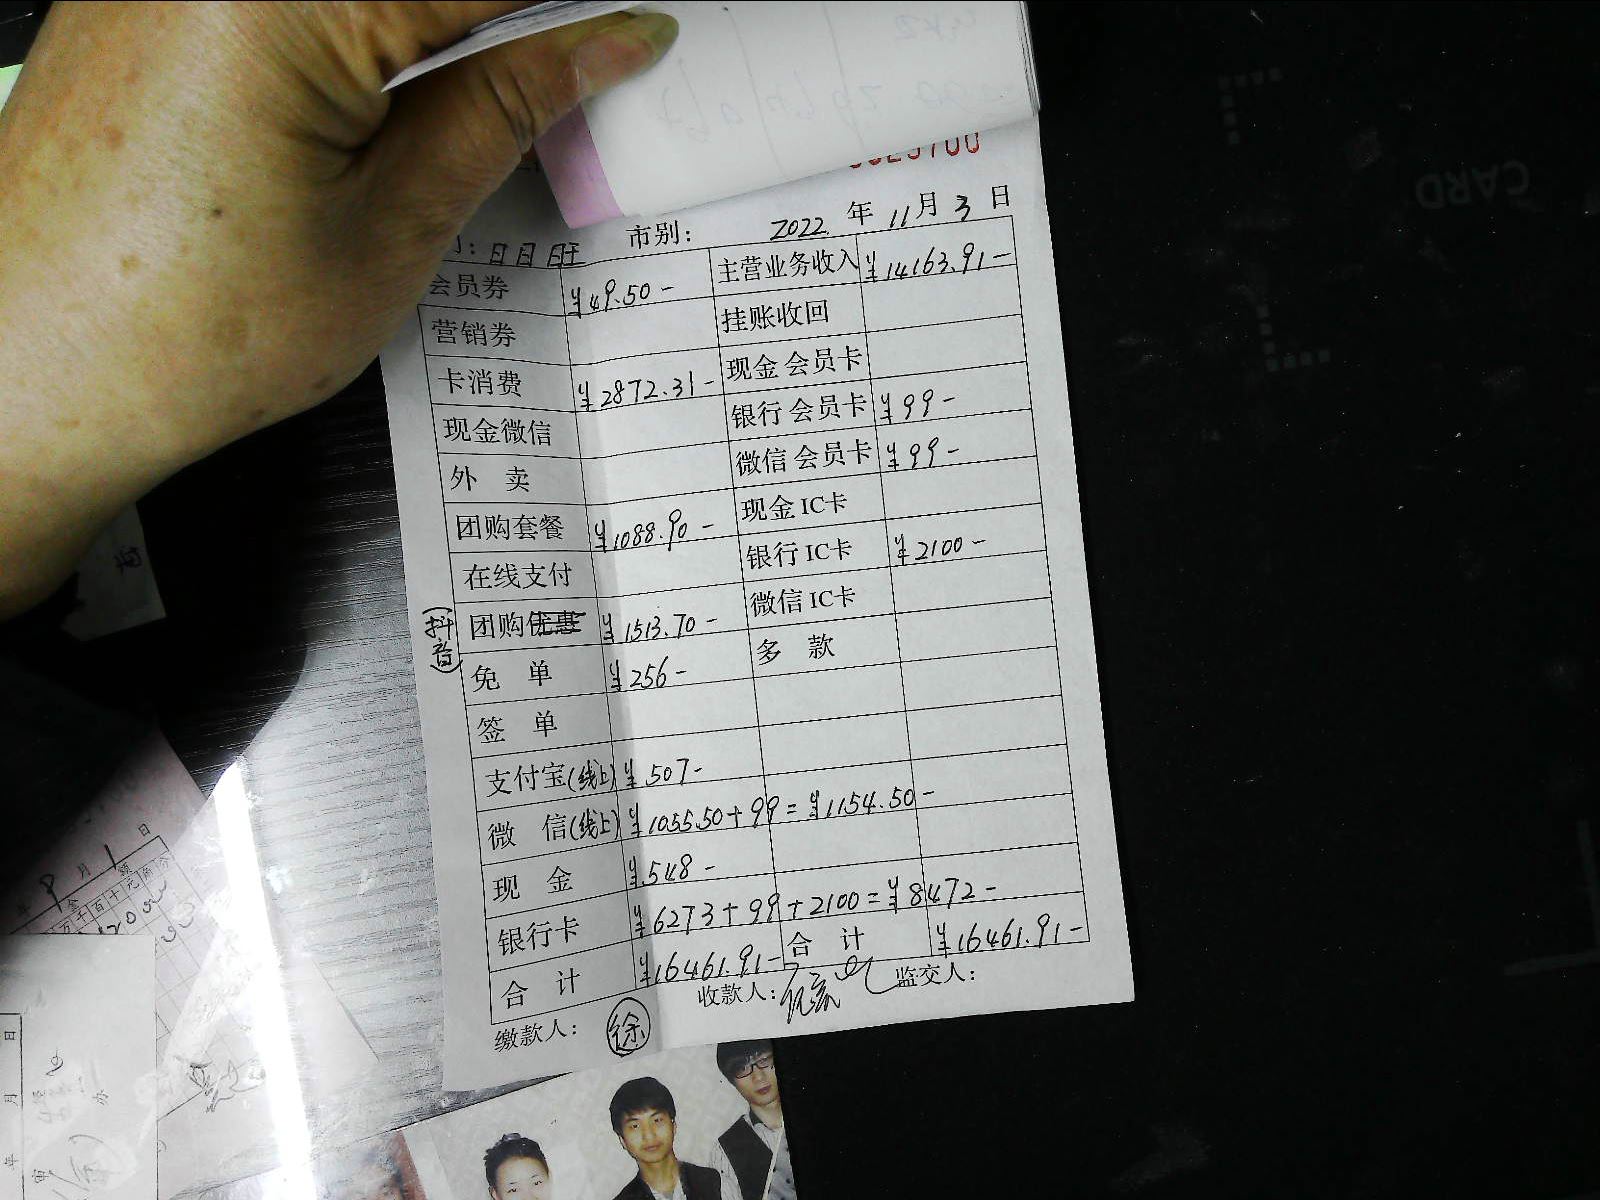 市别： 2022 年 11 月 3 日
会员券 ¥49.50- 主营业务收入 ¥14163.91-
营销券 挂账收回
卡消费 ¥2872.31- 现金 会员卡
现金微信 银行 会员卡 ¥99-
外 卖 微信 会员卡 ¥99-
团购套餐 ¥1088.90- 现金 IC卡
在线支付 银行 IC卡 ¥2100-
(抖音) 团购优惠 ¥1513.70- 微信 IC卡
免 单 ¥256- 多 款
签 单
支付宝(线上) ¥507-
微 信(线上) ¥1055.50+99=¥1154.50-
现 金 ¥548-
银行卡 ¥6273+99+2100=¥8472-
合 计 ¥16461.91- 合 计 ¥16461.91-
缴款人： 徐 收款人： 监交人：
CARD
年 9 月 1 日
金 额
万 千 百 十 元 角 分
年 月 日
审 办